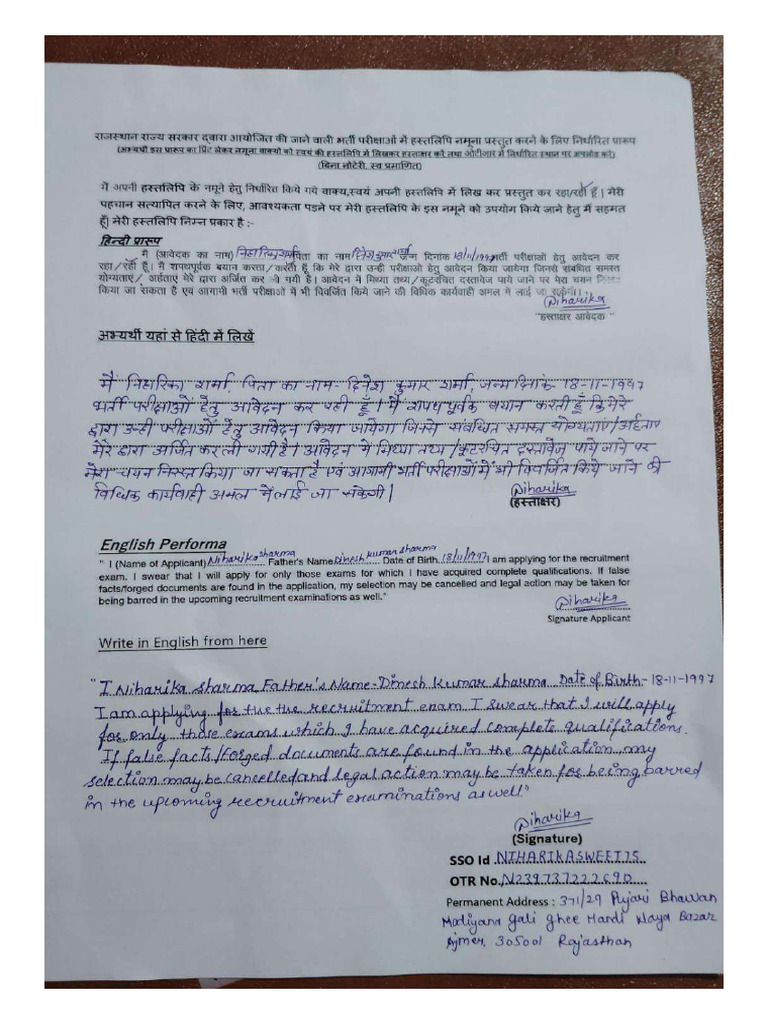 राजस्थान राज्य सरकार दवारा आयोजित की जाने वाली भर्ती परीक्षाओं में हस्तलिपि नमूना प्रस्तुत करने के लिए निर्धारित प्रारूप
(अभ्यर्थी इस प्रारूप का प्रिंट लेकर नमूना वाक्यों को स्वयं की हस्तलिपि में लिखकर हस्ताक्षर करे तथा ओटीआर में निर्धारित स्थान पर अपलोड करे)
(बिना नोटेरी, स्व प्रमाणित)
में अपनी हस्तलिपि के नमूने हेतु निर्धारित किये गये वाक्य,स्वयं अपनी हस्तलिपि में लिख कर प्रस्तुत कर रहा/रही हूँ। मेरी
पहचान सत्यापित करने के लिए, आवश्यकता पड़ने पर मेरी हस्तलिपि के इस नमूने को उपयोग किये जाने हेतु में सहमत
हूँ। मेरी हस्तलिपि निम्न प्रकार है :-
हिन्दी प्रारूप
में (आवेदक का नाम) निहारिका शर्मा पिता का नाम दिनेश कुमार शर्मा जन्म दिनांक 18/11/1997 भर्ती परीक्षाओं हेतु आवेदन कर
रहा/रही हूँ। मै शपथपूर्वक बयान करता/करती हूँ कि मेरे द्वारा उन्ही परीक्षाओं हेतु आवेदन किया जायेगा जिनसे संबंधित समस्त
योग्यताएं/ अर्हताए मेरे द्वारा अर्जित कर ली गयी है। आवेदन में मिथ्या तथ्य/कूटरचित दस्तावेज पाये जाने पर मेरा चयन निरस्त
किया जा सकता है एवं आगामी भर्ती परीक्षाओं में भी विवर्जित किये जाने की विधिक कार्यवाही अमल में लाई जा सकेगी।
Niharika
"हस्ताक्षर आवेदक "
अभ्यर्थी यहां से हिंदी में लिखें
मैं निहारिका शर्मा, पिता का नाम- दिनेश कुमार शर्मा, जन्म दिनांक- 18-11-1997
भर्ती परीक्षाओं हेतु आवेदन कर रही हूँ। मै शपथ पूर्वक बयान करती हूँ कि मेरे
द्वारा उन्ही परीक्षाओं हेतु आवेदन किया जायेगा जिनसे संबंधित समस्त योग्यताएं/अर्हताए
मेरे द्वारा अर्जित कर ली गयी है। आवेदन में मिथ्या तथ्य/कूटरचित दस्तावेज पाये जाने पर
मेरा चयन निरस्त किया जा सकता है एवं आगामी भर्ती परीक्षाओं में भी विवर्जित किये जाने की
विधिक कार्यवाही अमल में लाई जा सकेगी।
Niharika
(हस्ताक्षर)
English Performa
" I (Name of Applicant) Niharika sharma Father's Name Dinesh kumar sharma Date of Birth 18/11/1997 I am applying for the recruitment
exam. I swear that I will apply for only those exams for which I have acquired complete qualifications. If false
facts/forged documents are found in the application, my selection may be cancelled and legal action may be taken for
being barred in the upcoming recruitment examinations as well."
Niharika
Signature Applicant
Write in English from here
"I Niharika sharma Father's Name-Dinesh Kumar sharma Date of Birth- 18-11-1997
I am applying for the the recruitment exam I swear that I will apply
for only those exams which I have acquired complete qualifications.
If false facts/Forged documents are found in the application, my
selection may be cancelled and legal action may be taken for being barred
in the upcoming recruitment examinations as well"
Niharika
(Signature)
SSO Id NIHARIKASWEET75
OTR No. N239737222690
Permanent Address : 371/29 Pujari Bhawan
Modiyana gali ghee Mandi Naya Bazar
Ajmer, 305001 Rajasthan